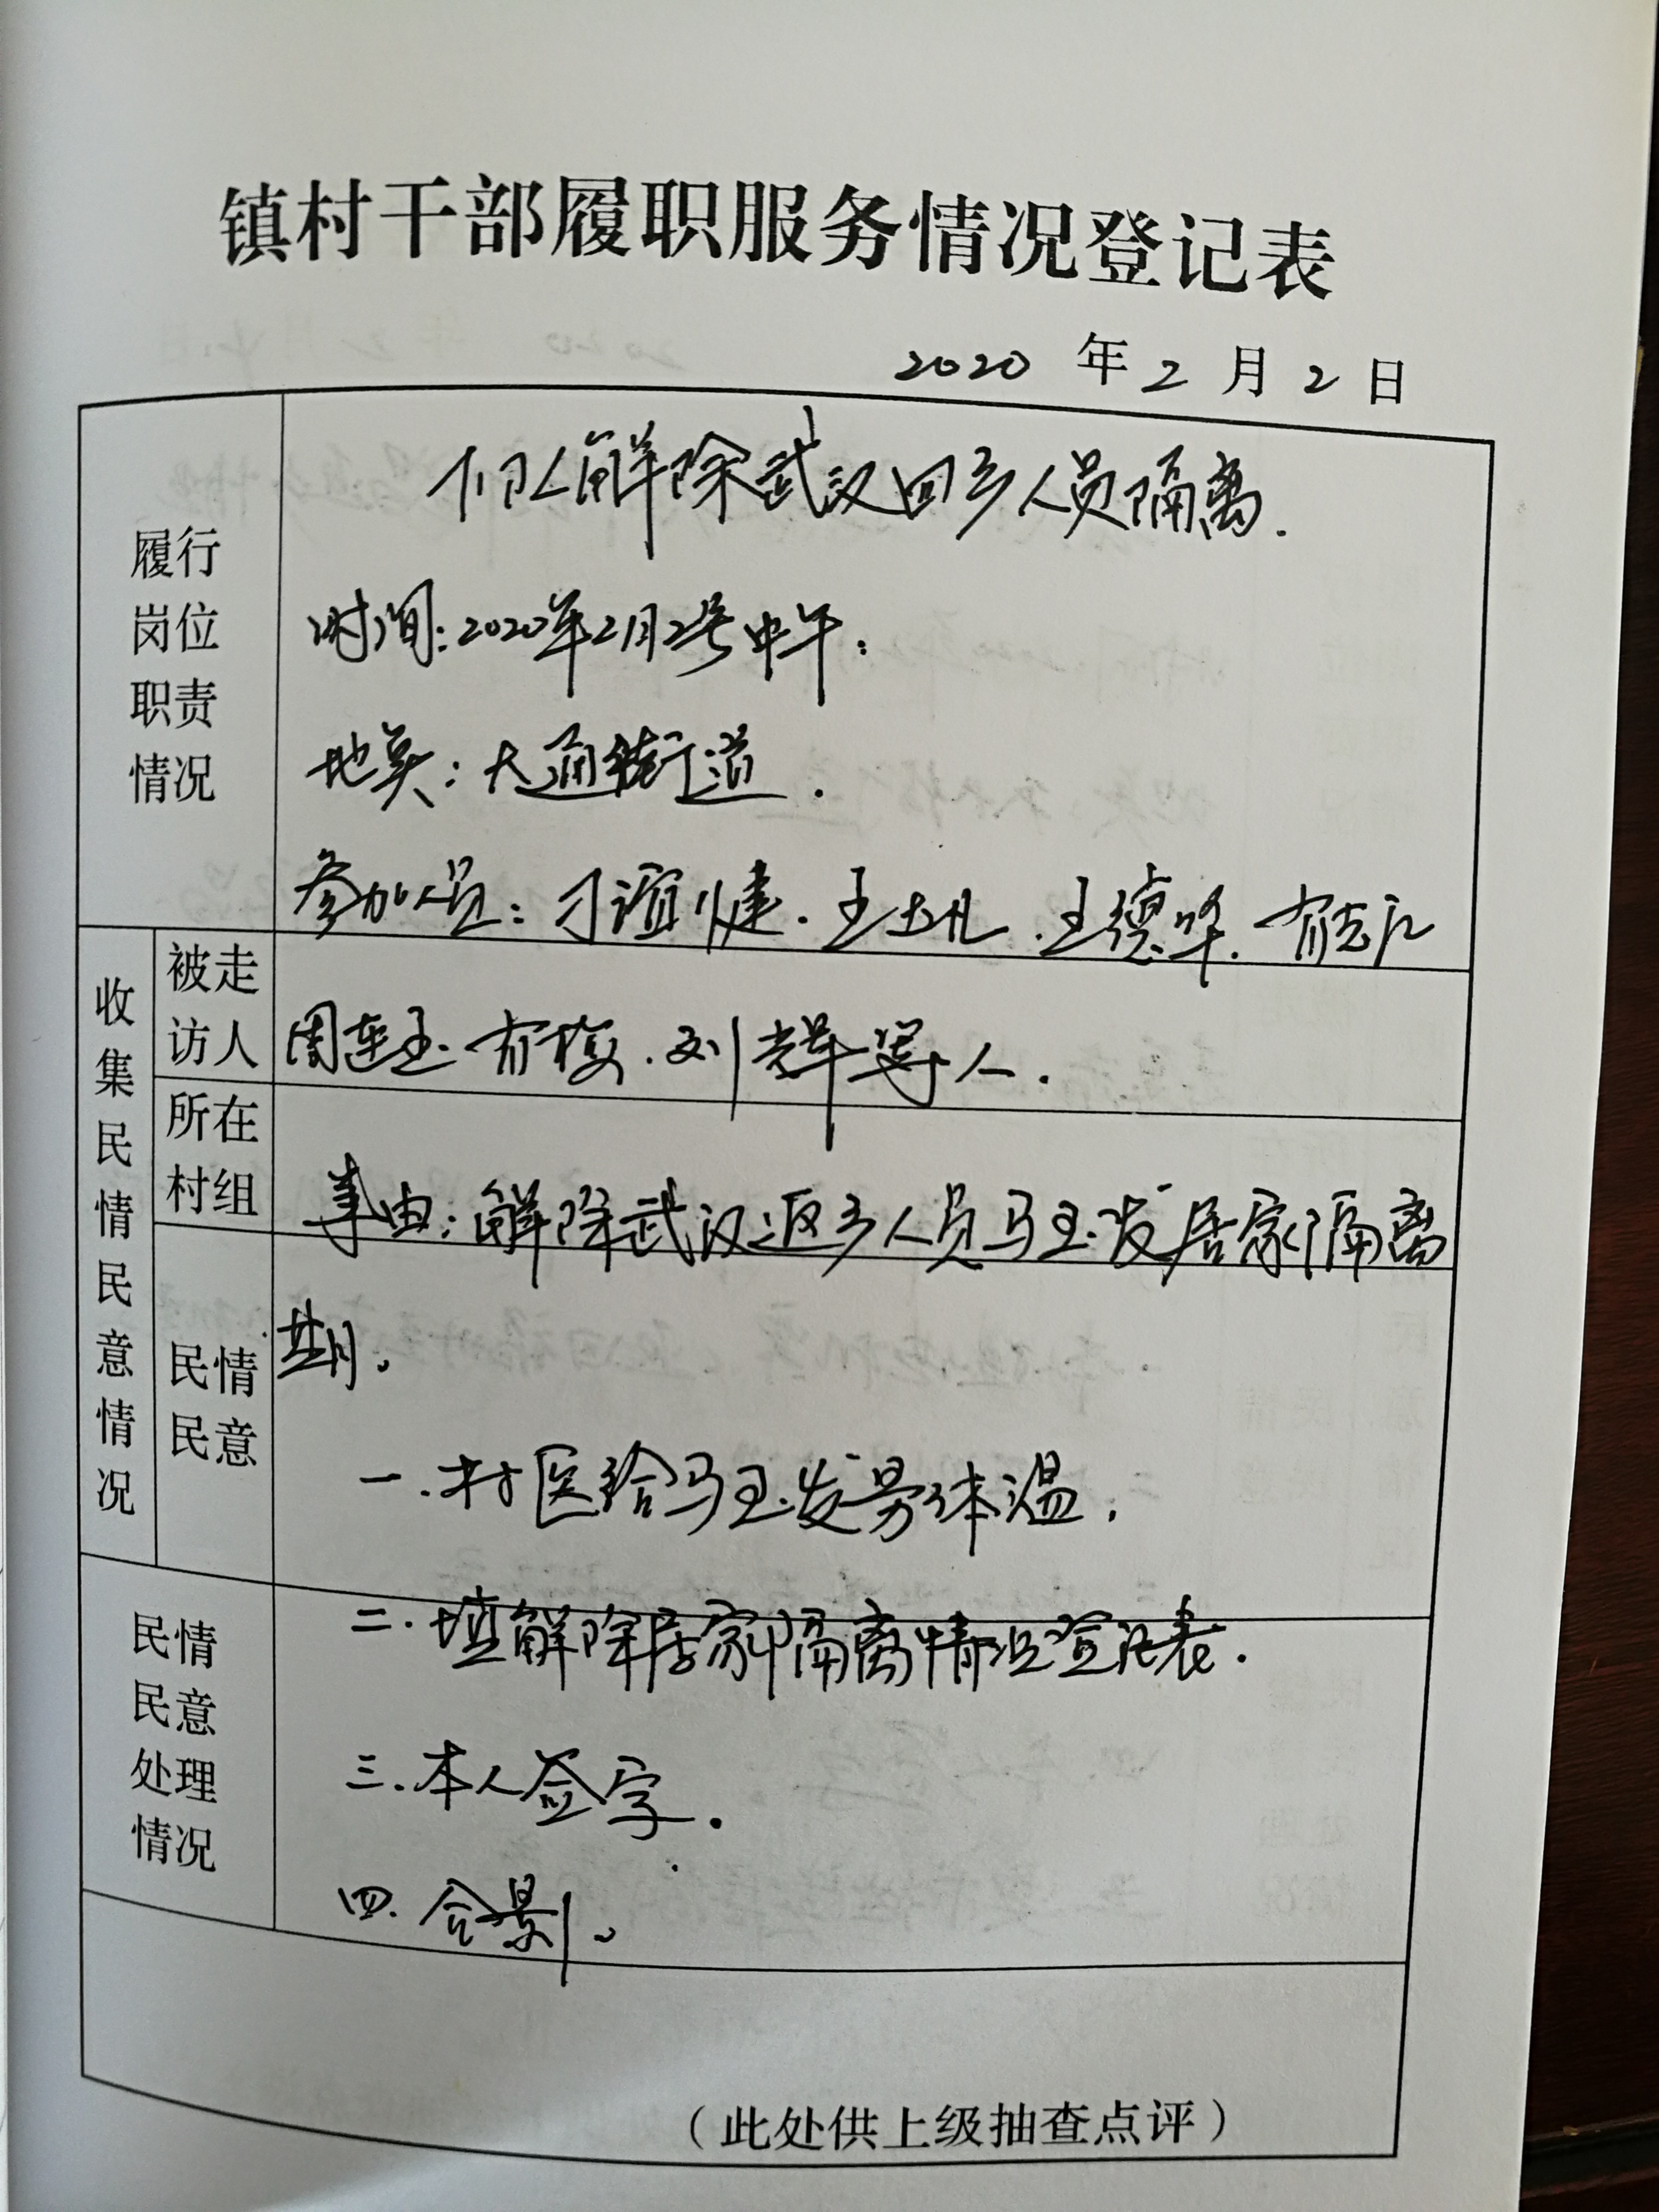 镇村干部履职服务情况登记表
2020 年 2 月 2 日
履行
岗位
职责
情况
下队解除武汉回乡人员隔离.
时间:2020年2月2号中午:
地点:大通街道.
参加人员:刁谊健.王士凡.王德华.有志
收集民情民意情况
被走
访人
周连玉 有梅.刘辉等人.
所在
村组
事由:解除武汉返乡人员马玉发居家隔离
民情
民意
期。
一.村医给马玉发量体温.
民情
民意
处理
情况
二.填解除居家隔离情况登记表.
三.本人签字.
四.合影。
(此处供上级抽查点评)